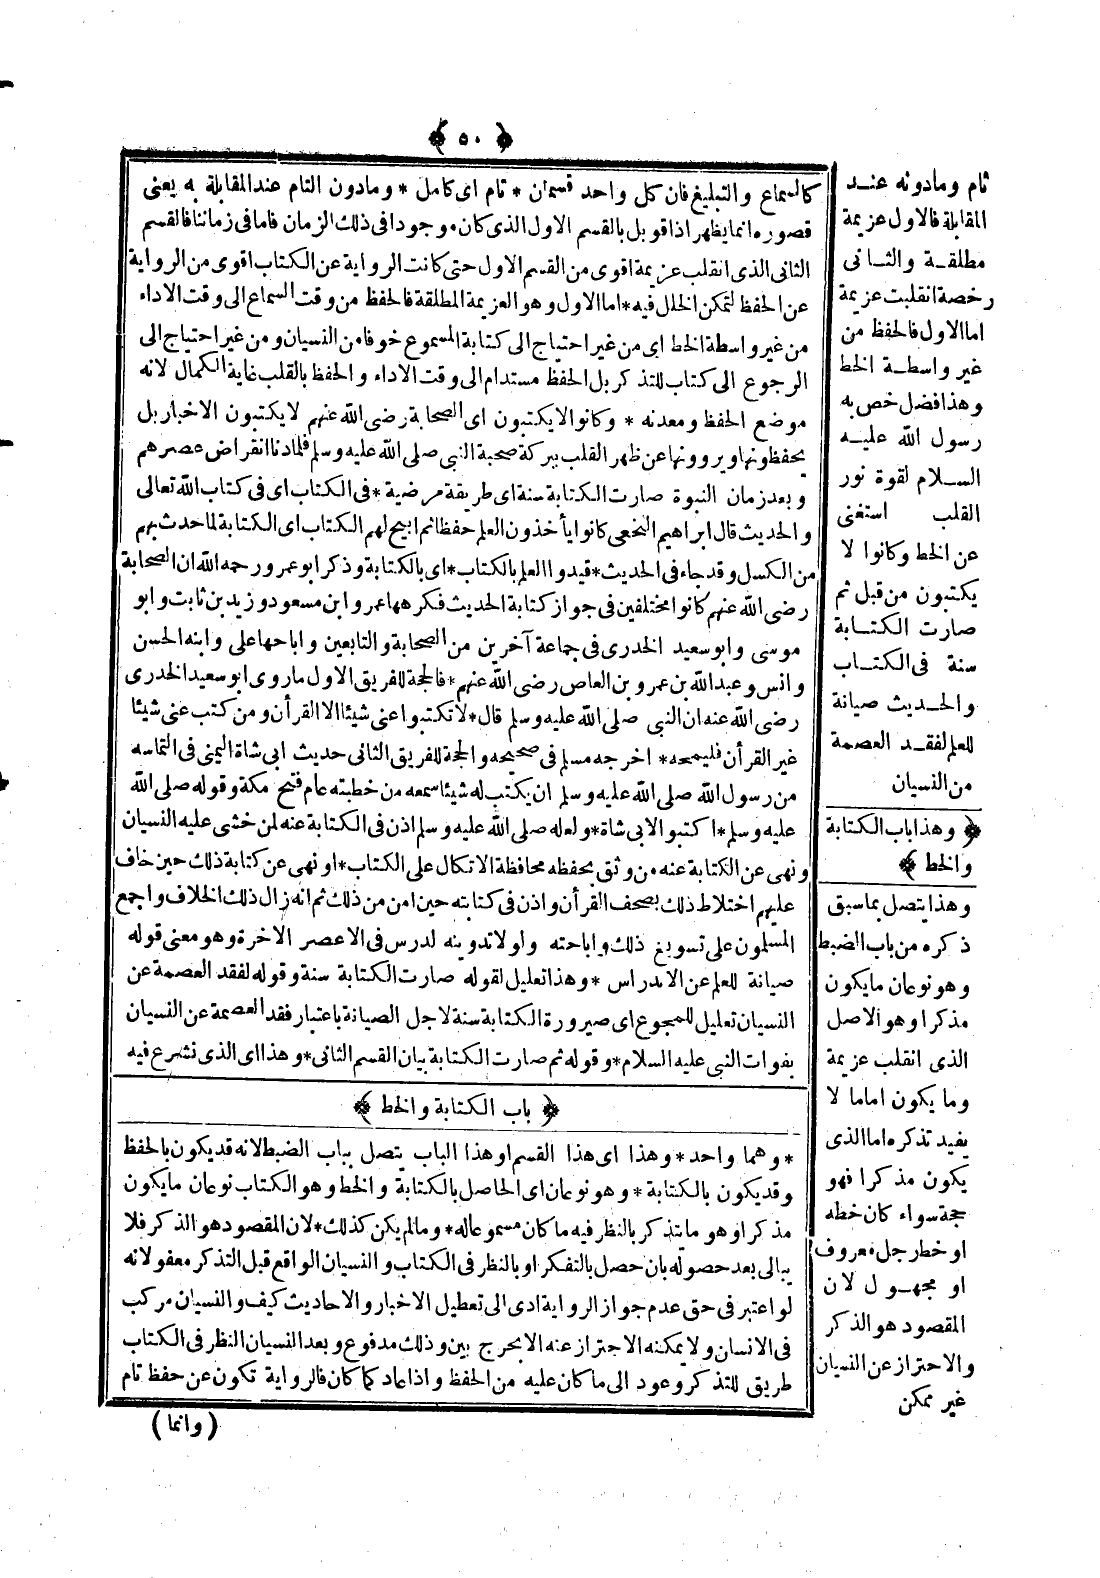 ﴿ ٥٠ ﴾
كالسماع والتبليغ فان كل واحد قسمان * تام اى كامل * ومادون التام عند المقابلة به يعنى
قصوره انما يظهر اذا قوبل بالقسم الاول الذى كان موجودا فى ذلك الزمان فاما فى زماننا فالقسم
الثانى الذى انقلب عزيمة اقوى من القسم الاول حتى كانت الرواية عن الكتاب اقوى من الرواية
عن الحفظ لتمكن الخلل فيه * اما الاول وهو العزيمة المطلقة فالحفظ من وقت السماع الى وقت الاداء
من غير واسطة الخط اى من غير احتياج الى كتابة المسموع خوفا من النسيان ومن غير احتياج الى
الرجوع الى كتاب للتذكر بل الحفظ مستدام الى وقت الاداء والحفظ بالقلب غاية الكمال لانه
موضع الحفظ ومعدنه * وكانوا لايكتبون اى الصحابة رضى الله عنهم لايكتبون الاخبار بل
يحفظونها ويروونها عن ظهر القلب ببركة صحبة النبى صلى الله عليه وسلم فلما دنا انقراض عصرهم
وبعد زمان النبوة صارت الكتابة سنة اى طريقة مرضية * فى الكتاب اى فى كتاب الله تعالى
والحديث قال ابراهيم النخعى كانوا يأخذون العلم حفظا ثم ابيح لهم الكتاب اى الكتابة لما حدث بهم
من الكسل وقد جاء فى الحديث * قيدوا العلم بالكتاب * اى بالكتابة وذكر ابو عمرو رحمه الله ان الصحابة
رضى الله عنهم كانوا مختلفين فى جواز كتابة الحديث فكرهها عمر وابن مسعود وزيد بن ثابت وابو
موسى وابو سعيد الخدرى فى جماعة آخرين من الصحابة والتابعين واباحها على وابنه الحسن
وانس وعبدالله بن عمرو بن العاص رضى الله عنهم * فالحجة للفريق الاول ماروى ابو سعيد الخدرى
رضى الله عنه ان النبى صلى الله عليه وسلم قال * لاتكتبوا عنى شيئا الا القرأن ومن كتب عنى شيئا
غير القرأن فليمحه * اخرجه مسلم فى صحيحه والحجة للفريق الثانى حديث ابى شاة اليمنى فى التماسه
من رسول الله صلى الله عليه وسلم ان يكتب له شيئا سمعه من خطبته عام فتح مكة وقوله صلى الله
عليه وسلم * اكتبوا لابى شاة * ولعله صلى الله عليه وسلم اذن فى الكتابة عنه لمن خشى عليه النسيان
ونهى عن الكتابة عنه من وثق بحفظه محافظة الاتكال على الكتاب * او نهى عن كتابة ذلك حين خاف
عليهم اختلاط ذلك بصحف القرأن واذن فى كتابته حين امن من ذلك ثم انه زال ذلك الخلاف واجمع
المسلمون على تسويغ ذلك واباحته ولولا تدوينه لدرس فى الاعصر الاخرة وهو معنى قوله
صيانة للعلم عن الاندراس * وهذا تعليل لقوله صارت الكتابة سنة وقوله لفقد العصمة عن
النسيان تعليل للمجموع اى صيرورة الكتابة سنة لاجل الصيانة باعتبار فقد العصمة عن النسيان
بفوات النبى عليه السلام * وقوله ثم صارت الكتابة بيان القسم الثانى * وهذا اى الذى نشرع فيه
﴿ باب الكتابة والخط ﴾
* وهما واحد * وهذا اى هذا القسم او هذا الباب يتصل بباب الضبط لانه قد يكون بالحفظ
وقد يكون بالكتابة * وهو نوعان اى الحاصل بالكتابة والخط وهو الكتاب نوعان مايكون
مذكرا وهو مايتذكر بالنظر فيه ما كان مسموعا له * ومالم يكن كذلك * لان المقصود هو الذكر فلا
يبالى بعد حصوله بان حصل بالتفكر او بالنظر فى الكتاب والنسيان الواقع قبل التذكر معفو لانه
لو اعتبر فى حق عدم جواز الرواية ادى الى تعطيل الاخبار والاحاديث كيف والنسيان مركب
فى الانسان ولا يمكنه الاحتراز عنه الا بحرج بين وذلك مدفوع وبعد النسيان النظر فى الكتاب
طريق للتذكر وعود الى ما كان عليه من الحفظ واذا عاد كما كان فالرواية تكون عن حفظ تام
(وانما)
تام ومادونه عند
المقابلة فالاول عزيمة
مطلقة والثانى
رخصة انقلبت عزيمة
اما الاول فالحفظ من
غير واسطة الخط
وهذا فضل خص به
رسول الله عليه
السلام لقوة نور
القلب استغنى
عن الخط وكانوا لا
يكتبون من قبل ثم
صارت الكتابة
سنة فى الكتاب
والحديث صيانة
للعلم لفقد العصمة
من النسيان
﴿ وهذا باب الكتابة
والخط ﴾
وهذا يتصل بماسبق
ذكره من باب الضبط
وهو نوعان مايكون
مذكرا وهو الاصل
الذى انقلب عزيمة
وما يكون اماما لا
يفيد تذكره اما الذى
يكون مذكرا فهو
حجة سواء كان خطه
او خط رجل معروف
او مجهول لان
المقصود هو الذكر
والاحتراز عن النسيان
غير ممكن